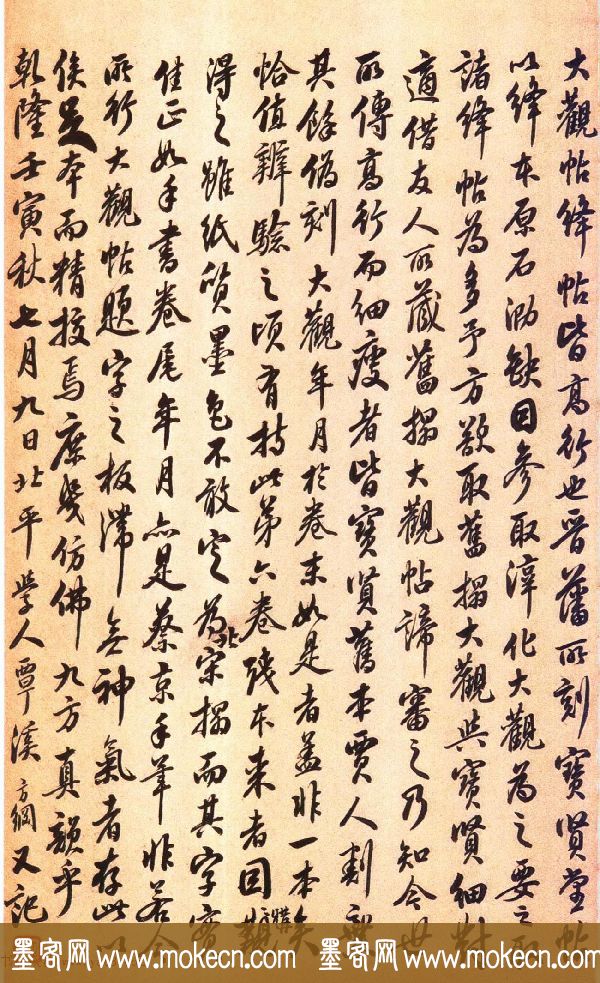 大觀帖絳帖皆高行也晉藩所刻寶賢堂帖
以絳本原石泐缺因參取淳化大觀為之要之
諸絳帖為多予方欲取舊搨大觀與寶賢細對
適借友人所藏舊搨大觀帖諦審之乃知今世
所傳高行而細瘦者皆寶賢舊本賈人割
其餘偽刻大觀年月於卷末如是者蓋非一本矣
恰值辨驗之頃有持此第六卷殘本來者因
得之雖紙質墨色不敢定為北宋搨而其字實
佳正如手書卷尾年月亦是蔡京手筆非若今
所行大觀帖題字之板滯無神氣者存此以
俟足本而精校焉庶幾仿佛九方真韻乎
乾隆壬寅秋七月九日北平學人覃溪方綱又記
墨客网 www.mokecn.com 墨客网 www.mokecn.com